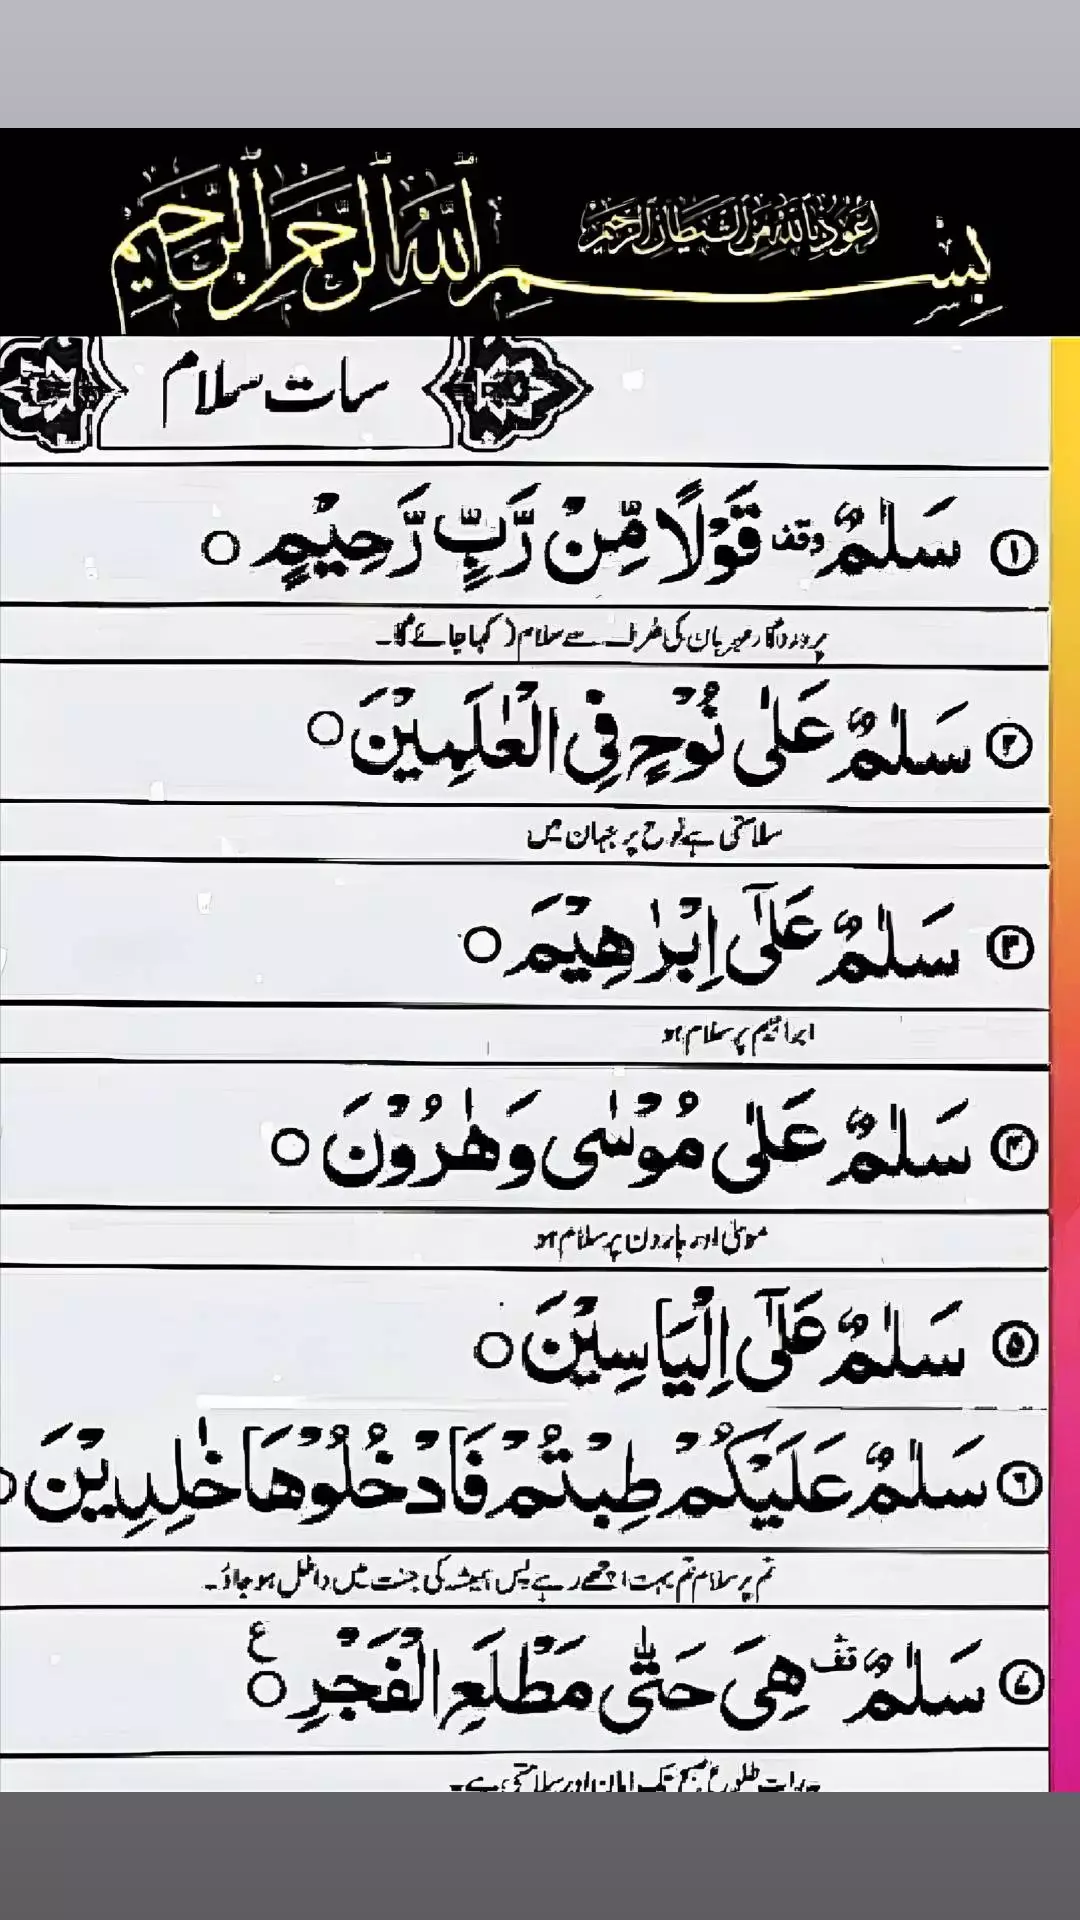 اعوذ بالله من الشيطان الرجيم
بِسْمِ اللهِ الرَّحْمٰنِ الرَّحِيمِ
سات سلام
۱ سَلٰمٌ وقف قَوْلًا مِّنْ رَّبٍّ رَّحِيْمٍ
پروردگار مہربان کی طرف سے سلام ( کہا جائے گا۔
۲ سَلٰمٌ عَلٰی نُوْحٍ فِی الْعٰلَمِیْنَ
سلامتی ہے نوح پر جہان میں
۳ سَلٰمٌ عَلٰۤی اِبْرٰهِیْمَ
ابراہیم پر سلام ہو
۴ سَلٰمٌ عَلٰی مُوْسٰی وَهٰرُوْنَ
موسیٰ اور ہارون پر سلام ہو
۵ سَلٰمٌ عَلٰۤی اِلْیَاسِیْنَ
۶ سَلٰمٌ عَلَیْکُمْ طِبْتُمْ فَادْخُلُوْهَا خٰلِدِیْنَ
تم پر سلام تم بہت اچھے رہے پس ہمیشہ کی جنت میں داخل ہو جاؤ۔
۷ سَلٰمٌ قف هِیَ حَتّٰی مَطْلَعِ الْفَجْرِ ع
یہ رات طلوع صبح تک امان اور سلامتی ہے۔